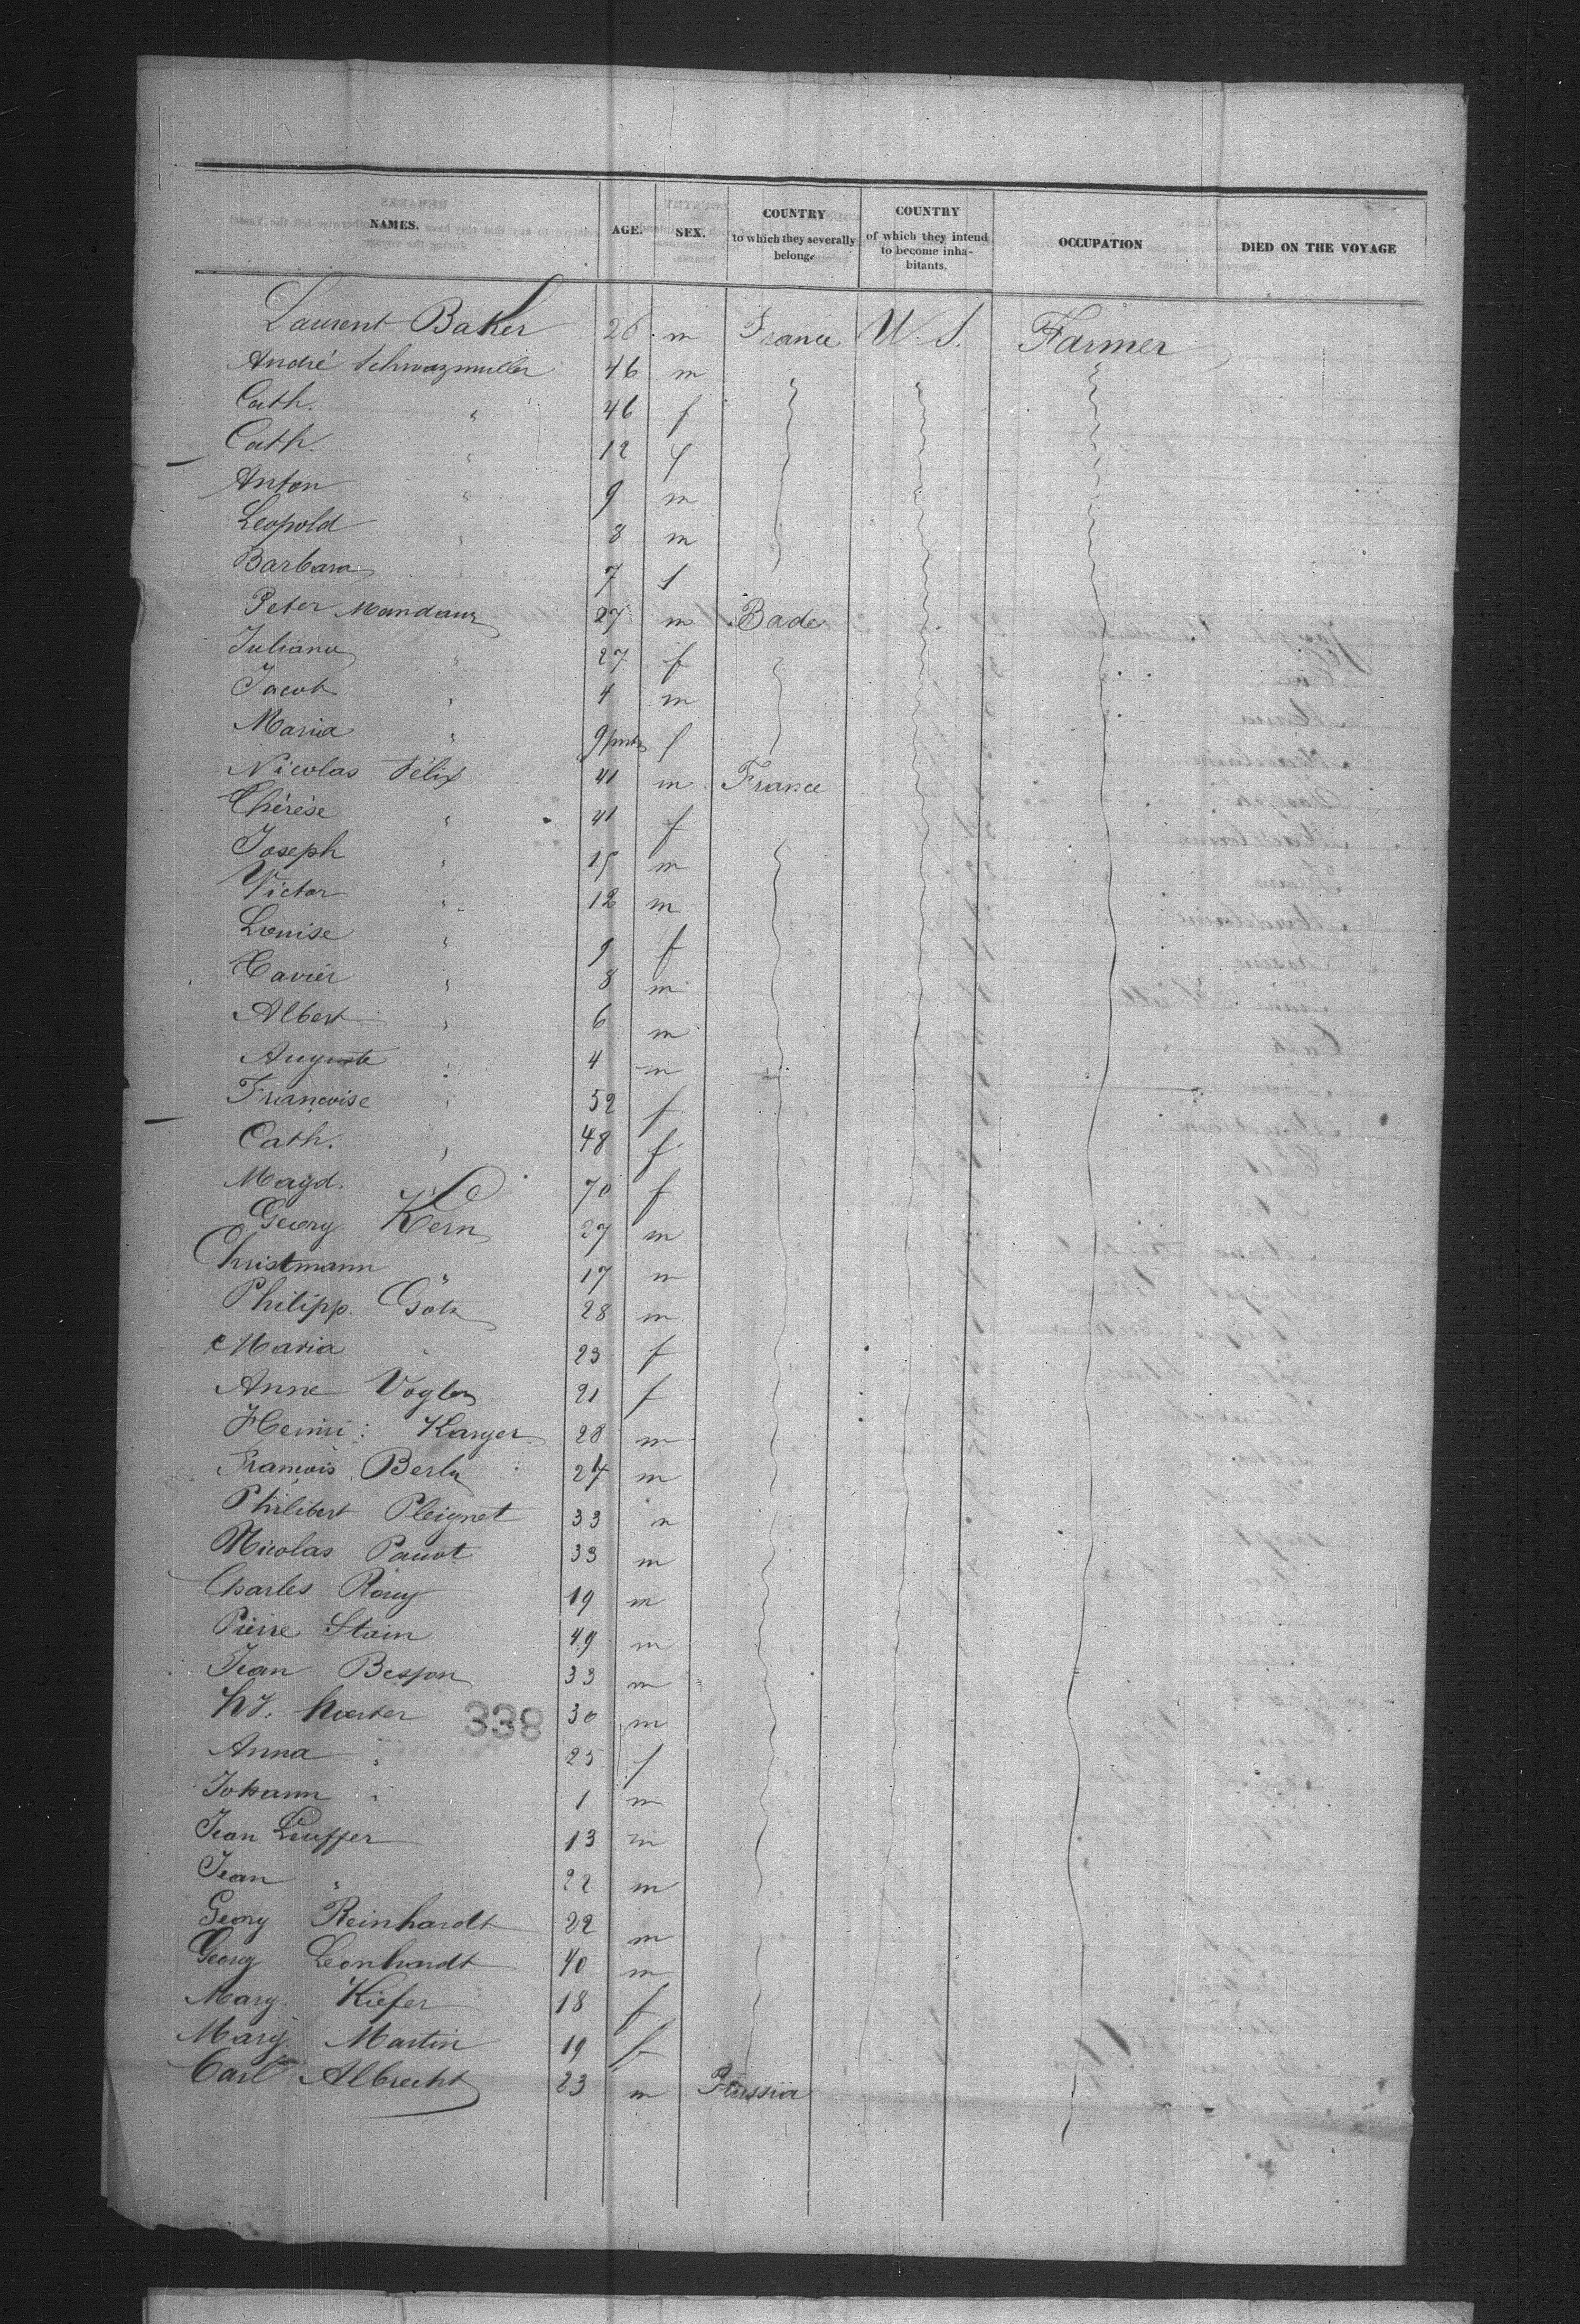 NAMES. AGE. SEX. COUNTRY to which they severally belong. COUNTRY of which they intend to become inhabitants. OCCUPATION DIED ON THE VOYAGE
Laurent Baker 26 m France U.S. Farmer
André Schwazmuller 46 m
Cath. " 46 f
Cath. " 12 f
Anton " 9 m
Leopold " 8 m
Barbara " 7 f
Peter Mandaur 27 m Bade
Juliana " 27 f
Jacob " 4 m
Maria " 9 mts f
Nicolas Félix 41 m France
Thérèse " 41 f
Joseph " 15 m
Victor " 12 m
Louise " 9 f
Xavier " 8 m
Albert " 6 m
Auguste " 4 m
Françoise " 52 f
Cath. " 48 f
Magd. 70 f
Georg Kern 27 m
Christmann " 17 m
Philipp Götz 28 m
Maria " 23 f
Anne Vogler 21 f
Henri Karger 28 m
François Berly 27 m
Philibert Pleignet 33 m
Nicolas 33 m
Charles 19 m
Pierre Stain 49 m
Jean Besson 33 m
338 30 m
Anna " 25 f
Johann " 1 m
Jean Leuffer 13 m
Jean " 22 m
Georg Reinhardt 22 m
Georg Leonhardt 40 m
Marg. Kiefer 18 f
Marg. Martin 19 f
Carl Albrecht 23 m Prussia